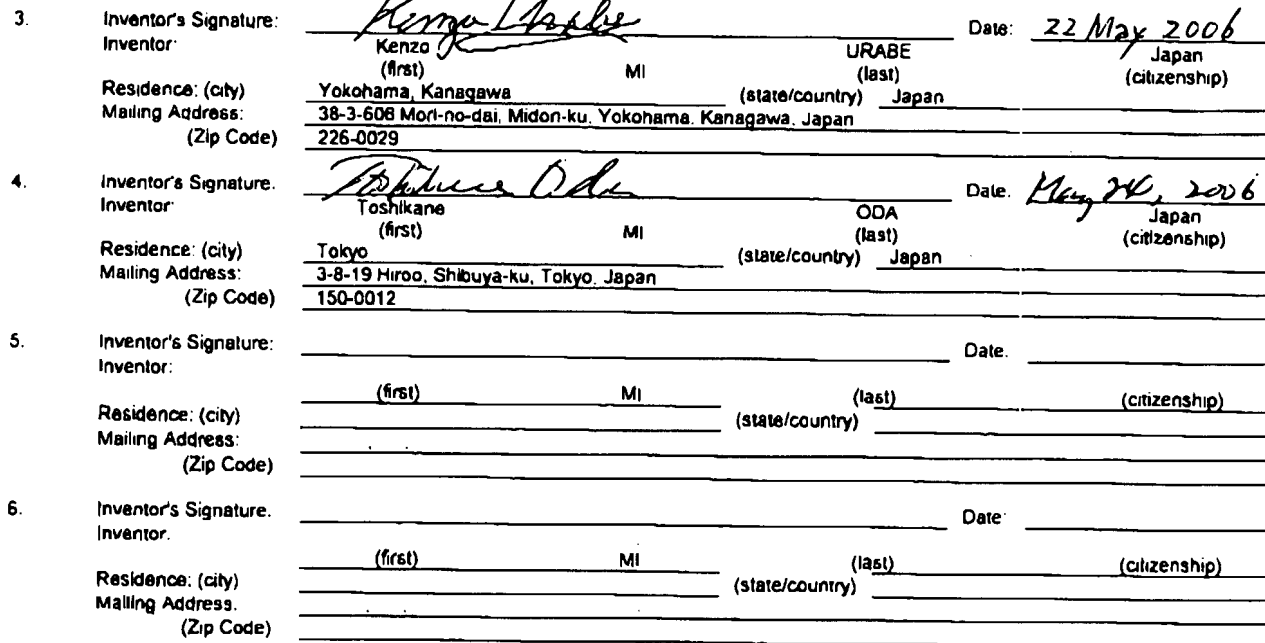 3. Inventor's Signature: Kenzo Urabe Date: 22 May 2006
Inventor: Kenzo URABE Japan
(first) MI (last) (citizenship)
Residence: (city) Yokohama, Kanagawa (state/country) Japan
Mailing Address: 38-3-606 Mori-no-dai, Midori-ku, Yokohama, Kanagawa, Japan
(Zip Code) 226-0029
4. Inventor's Signature. Toshikane Oda Date. May 24, 2006
Inventor Toshikane ODA Japan
(first) MI (last) (citizenship)
Residence: (city) Tokyo (state/country) Japan
Mailing Address: 3-8-19 Hiroo, Shibuya-ku, Tokyo, Japan
(Zip Code) 150-0012
5. Inventor's Signature: Date.
Inventor:
(first) MI (last) (citizenship)
Residence: (city) (state/country)
Mailing Address:
(Zip Code)
6. Inventor's Signature. Date
Inventor.
(first) MI (last) (citizenship)
Residence: (city) (state/country)
Mailing Address.
(Zip Code)